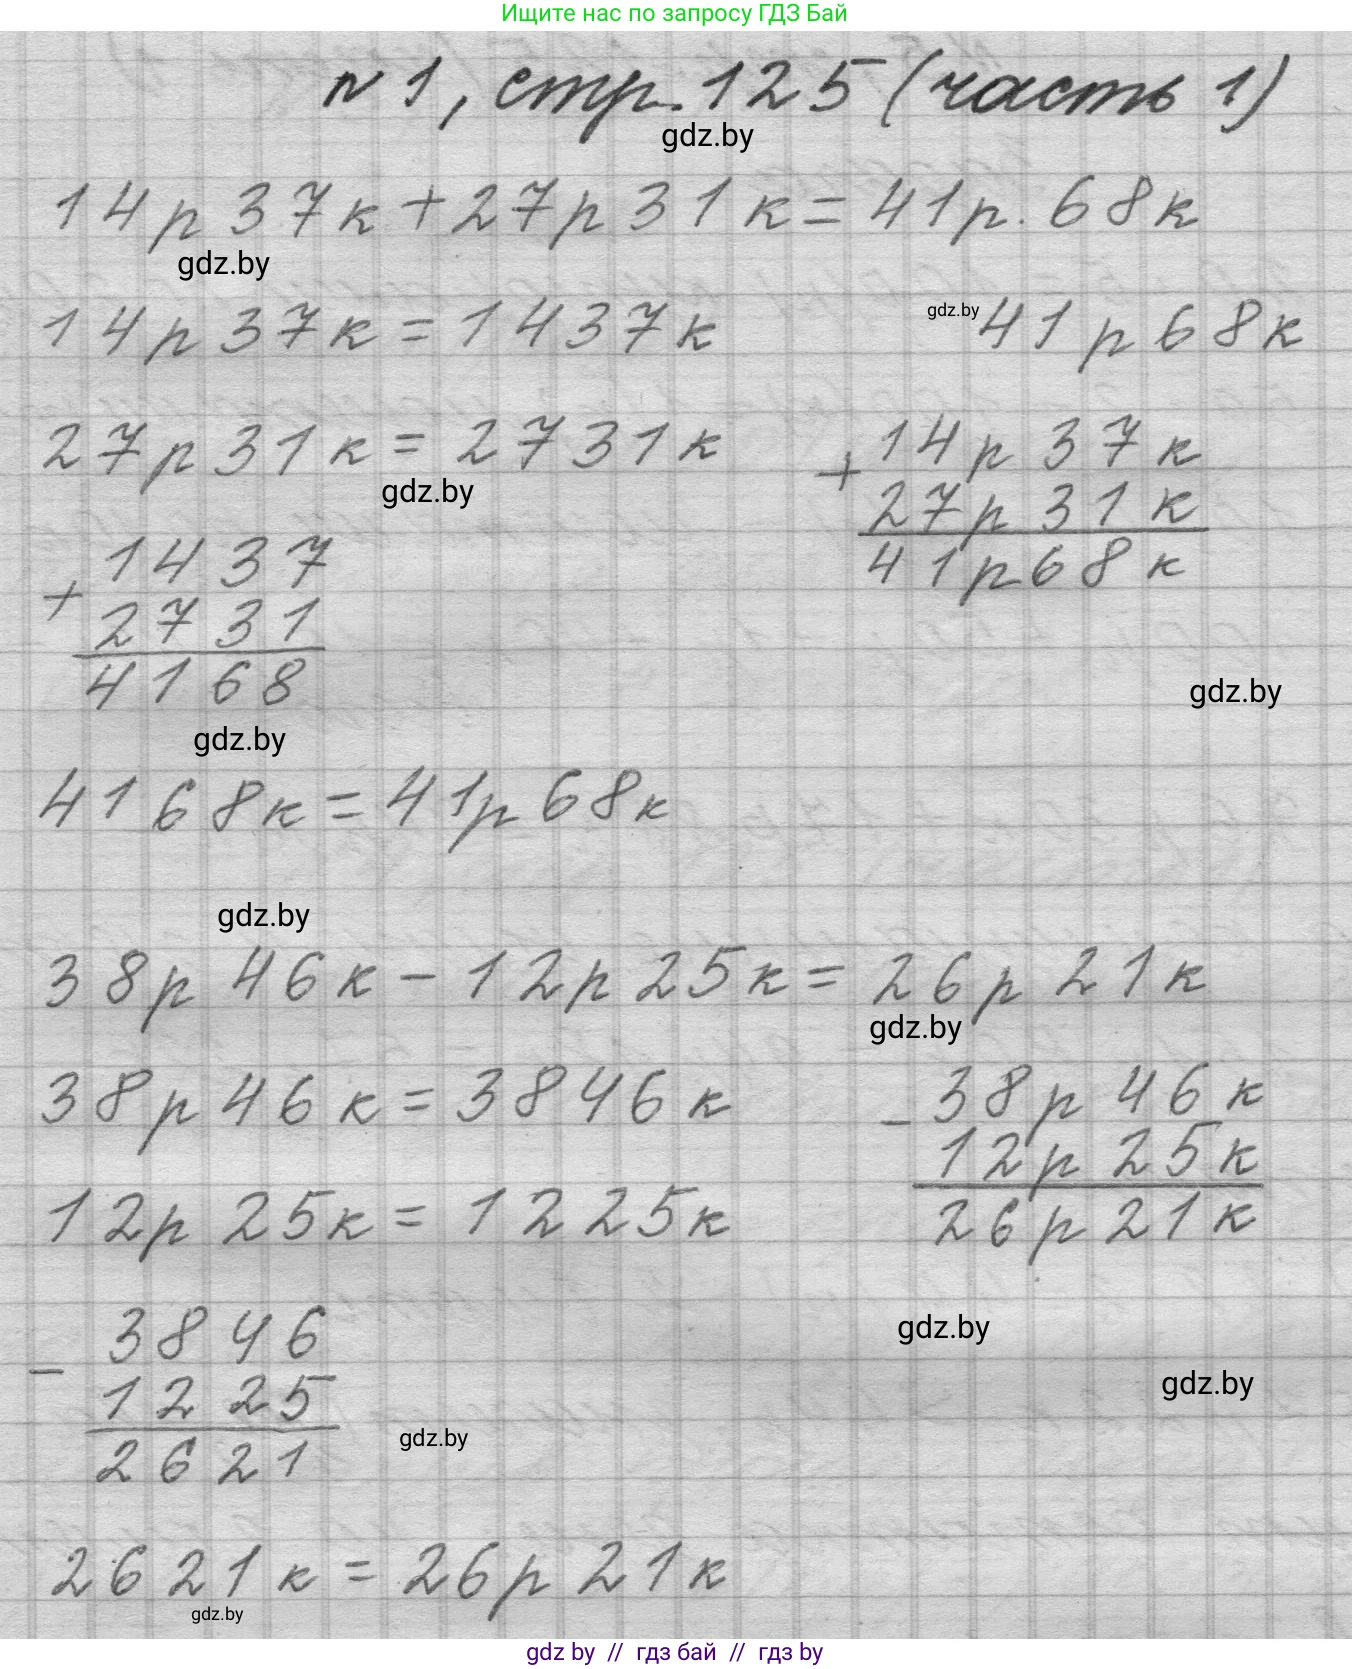 Ищите нас по запросу ГДЗ Бай
№1, стр. 125 (часть 1)
gdz.by
14р 37к + 27р 31к = 41р. 68к
gdz.by
14р 37к = 1437к
gdz.by
41р 68к
27р 31к = 2731к
gdz.by
+ 14р 37к
27р 31к
41р 68к
+ 1437
2731
4168
gdz.by
gdz.by
4168к = 41р 68к
gdz.by
38р 46к - 12р 25к = 26р 21к
gdz.by
38р 46к = 3846к
- 38р 46к
12р 25к
26р 21к
12р 25к = 1225к
- 3846
1225
2621
gdz.by
gdz.by
gdz.by
2621к = 26р 21к
gdz.by
gdz by // гдз бай // гдз by